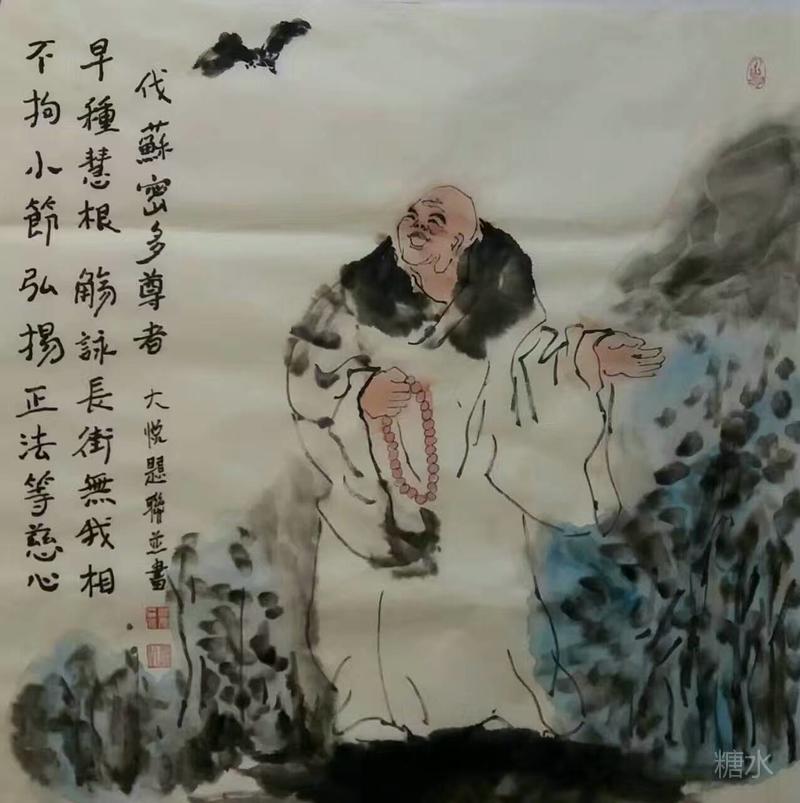 伐蘇密多尊者 大悅題聯並書
早種慧根觴詠長街無我相
不拘小節弘揚正法等慈心
糖水